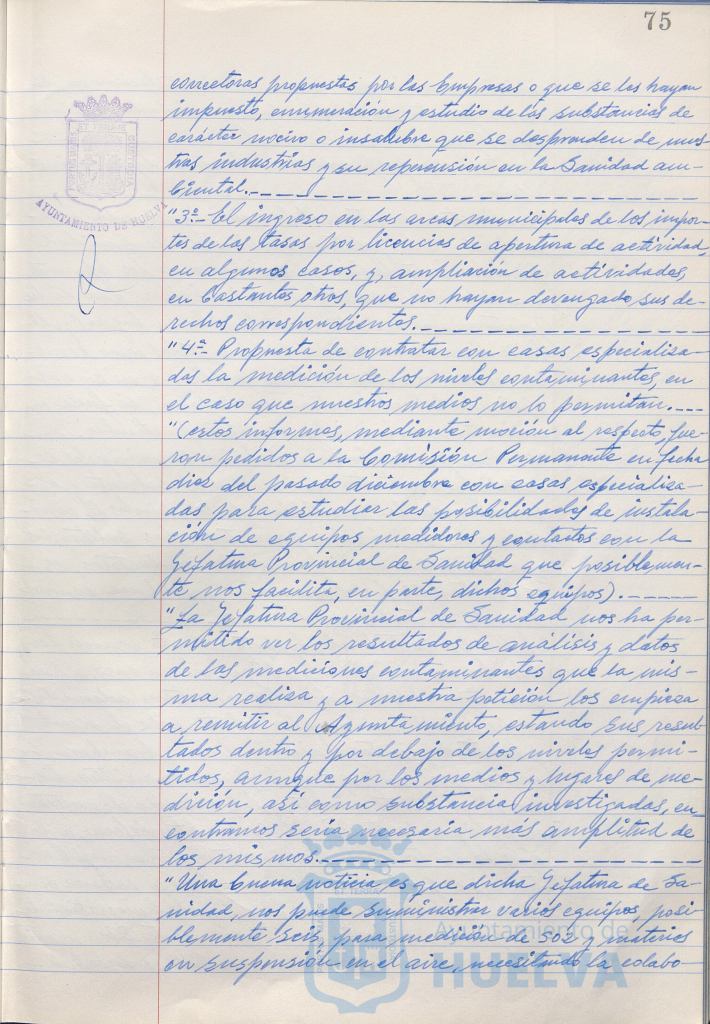 75
correctoras propuestas por las Empresas o que se les hayan
impuesto, enumeración y estudio de las substancias de
carácter nocivo o insalubre que se desprenden de nues-
tras industrias y su reperensión en la Sanidad am-
biental.
"3ª.- El ingreso en las arcas municipales de los impor-
tes de las tasas por licencias de apertura de actividad,
en algunos casos, y, ampliación de actividades,
en bastantes otros, que no hayan devengado sus de-
rechos correspondientes.
"4ª.- Propuesta de contratar con casas especializa-
das la medición de los niveles contaminantes, en
el caso que nuestros medios no lo permitan.
"(estos informes, mediante moción al respecto, fue-
ron pedidos a la Comisión Permanente en fecha
diez del pasado diciembre con casas especializa-
das para estudiar las posibilidades de instala-
ción de equipos medidores y contactos con la
Jefatura Provincial de Sanidad que posiblemen-
te nos facilita, en parte, dichos equipos).
"La Jefatura Provincial de Sanidad nos ha per-
mitido ver los resultados de análisis y datos
de las mediciones contaminantes que la mis-
ma realiza y a nuestra petición los empieza
a remitir al Ayuntamiento, estando sus resul-
tados dentro y por debajo de los niveles permi-
tidos, aunque por los medios y lugares de me-
dición, así como substancia investigadas, en-
contramos seria necesaria más amplitud de
los mismos.
"Una buena noticia es que dicha Jefatura de Sa-
nidad, nos puede suministrar varios equipos, posi-
blemente seis, para medición de SO2 y materias
en suspensión en el aire, necesitando la colabo-
AYUNTAMIENTO DE HUELVA
Ayuntamiento de
HUELVA